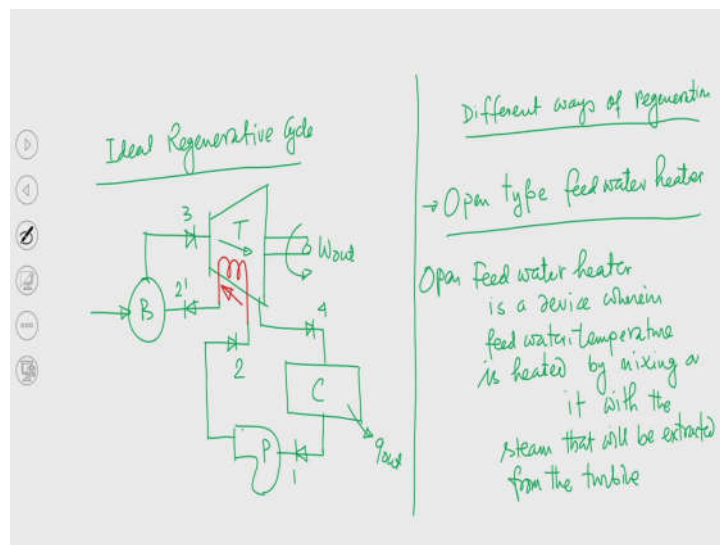 Ideal Regenerative Cycle
3
T
Wout
2'
B
4
2
C
P
1
qout
Different ways of regeneration
→ Open type feed water heater
Open Feed water heater
is a device wherein
feed water temperature
is heated by mixing a
it with the
steam that will be extracted
from the turbine